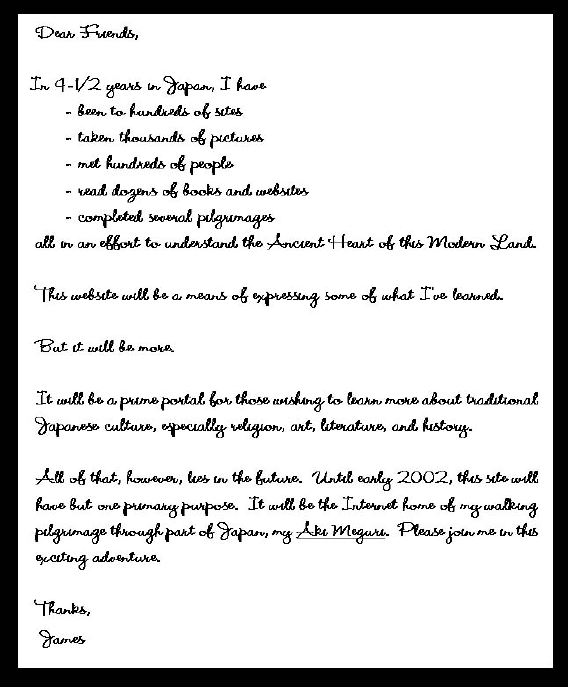 Dear Friends,
In 4-1/2 years in Japan, I have
- been to hundreds of sites
- taken thousands of pictures
- met hundreds of people
- read dozens of books and websites
- completed several pilgrimages
all in an effort to understand the Ancient Heart of this Modern Land.
This website will be a means of expressing some of what I've learned.
But it will be more.
It will be a prime portal for those wishing to learn more about traditional
Japanese culture, especially religion, art, literature, and history.
All of that, however, lies in the future. Until early 2002, this site will
have but one primary purpose. It will be the Internet home of my walking
pilgrimage through part of Japan, my Aki Meguri. Please join me in this
exciting adventure.
Thanks,
James